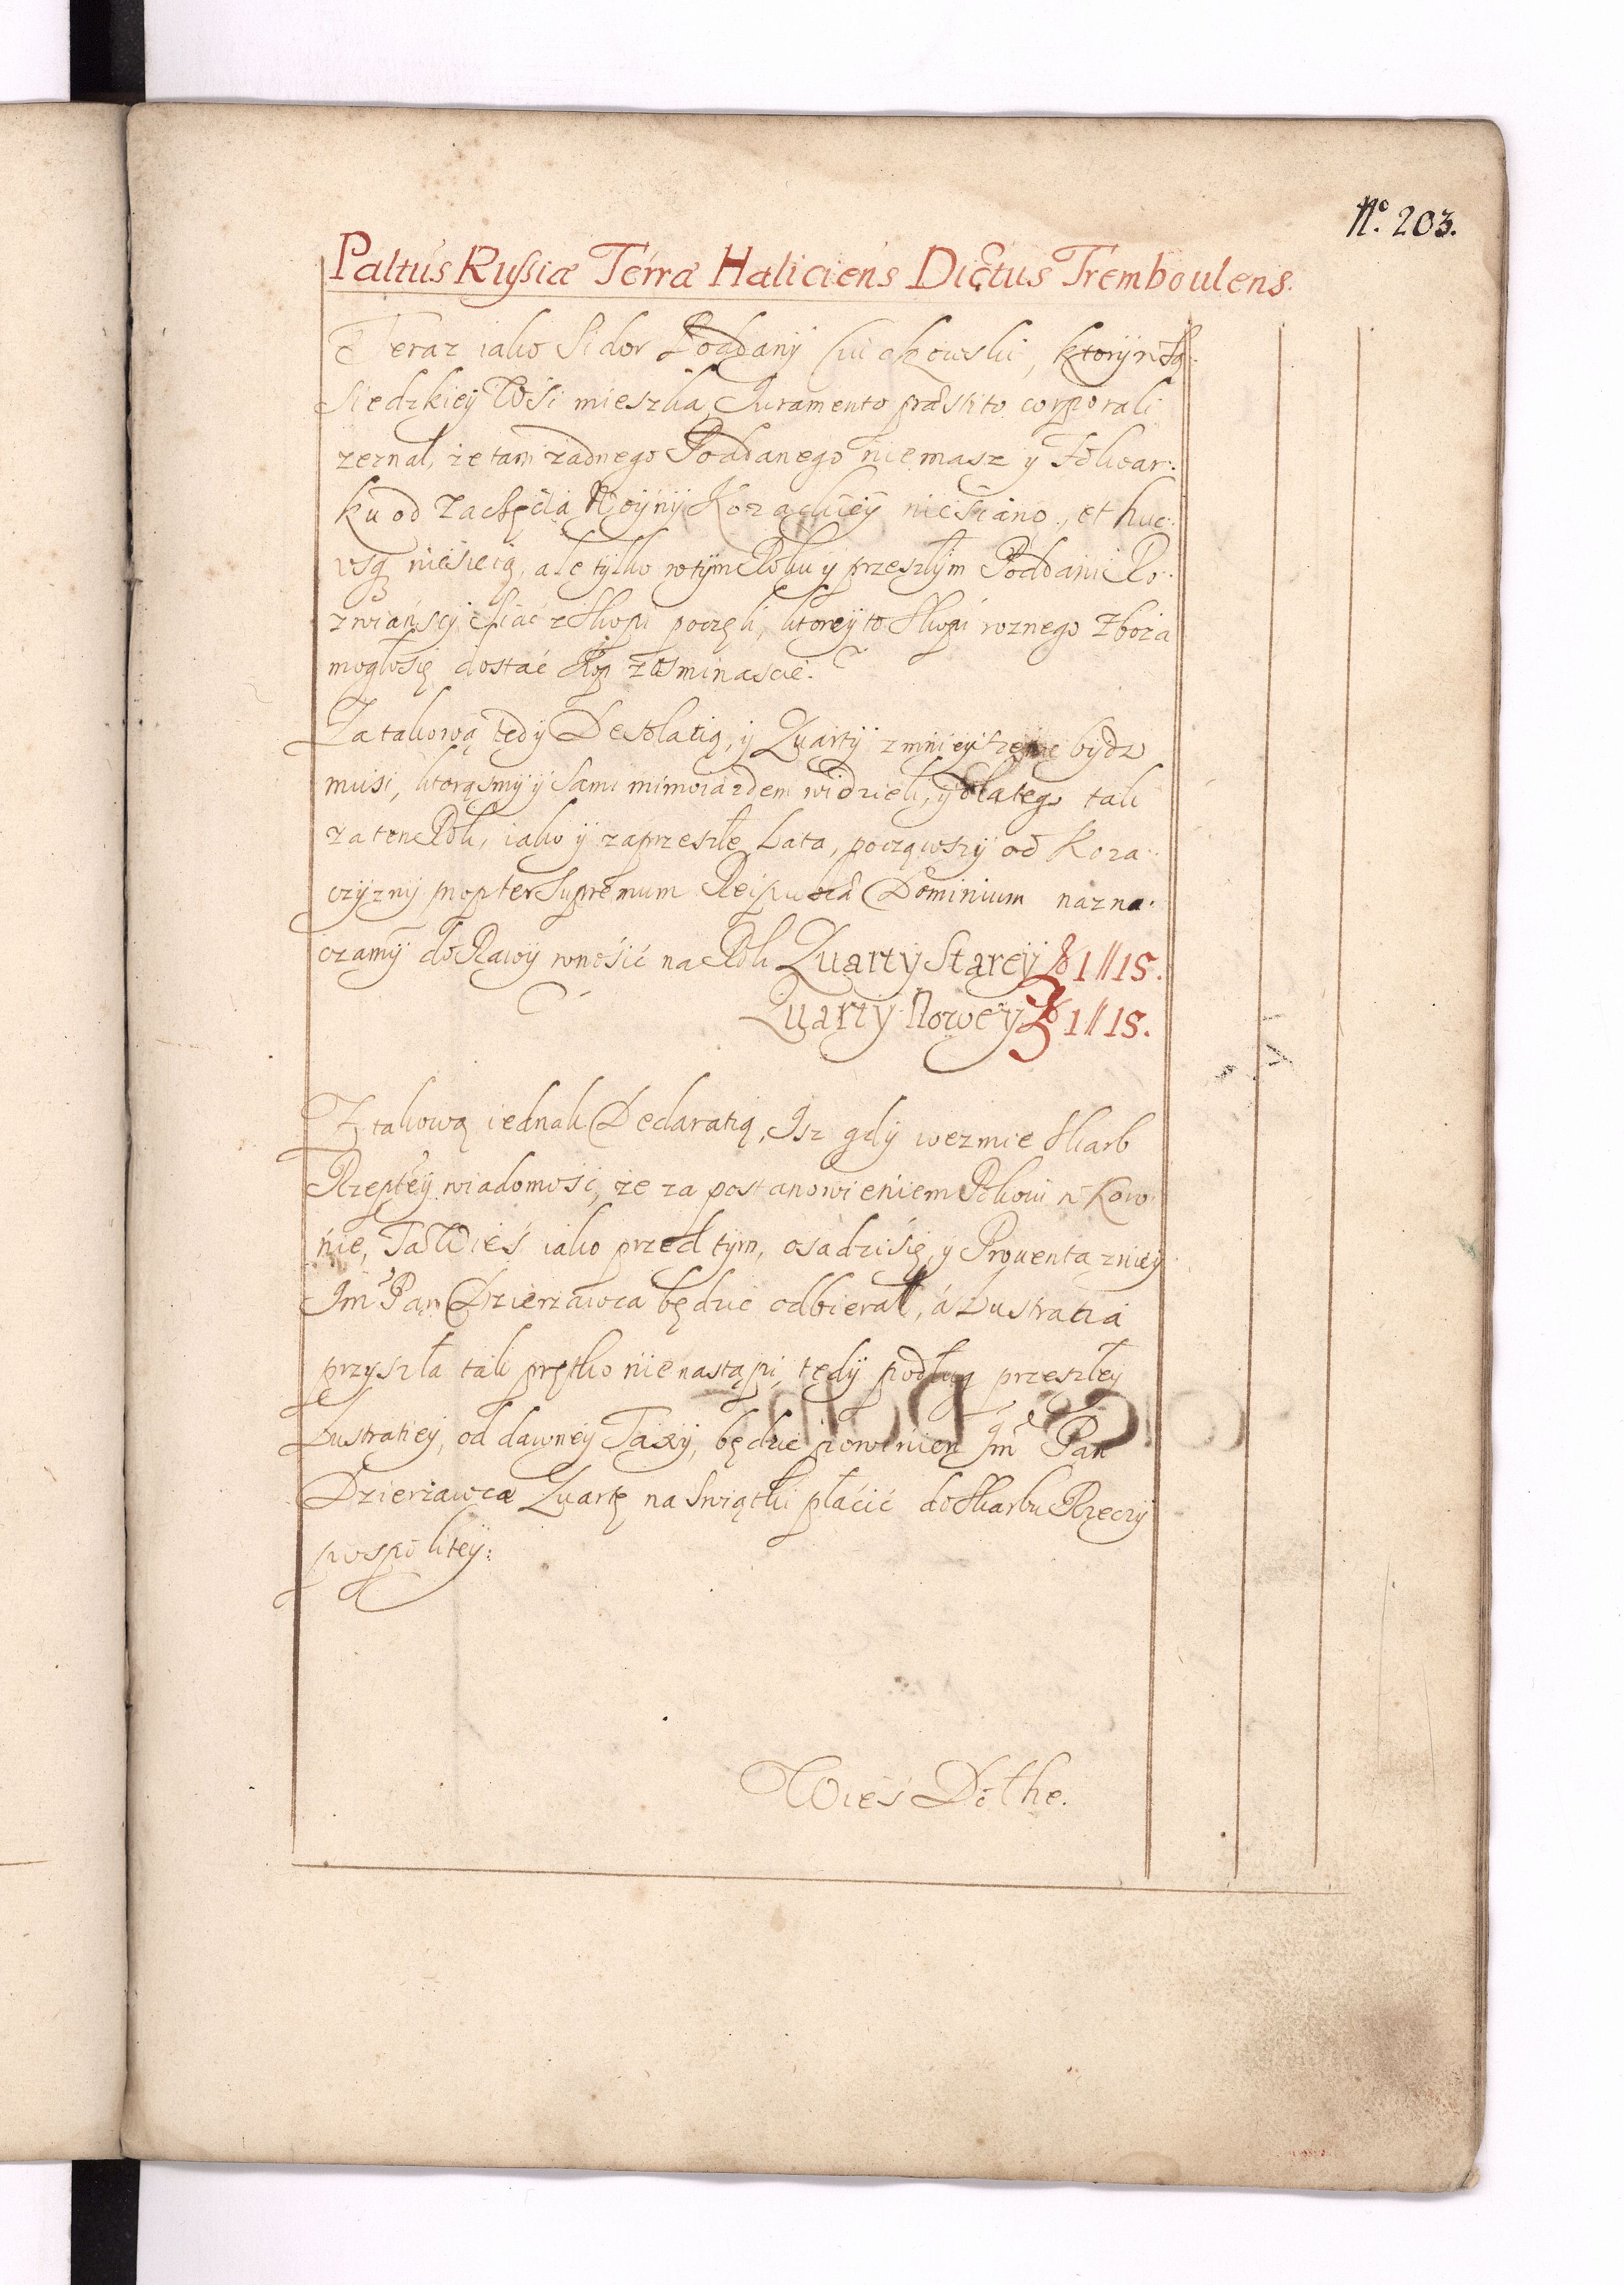 Nº. 203.
Paltus Russiæ Terræ Haliciens Dictus Tremboulens.
Teraz iako Sidor Poddany ktory w Są
siedzkiey Wśi mieszka Juramento præstito corporali
zeznał, że tam żadnego Poddanego niemasz y Folwar:
ku od Zaczęcia Woyny Kozackiey nieśiano, et huc
usq nieśieią, ale tylko wtym Roku y przeszłym Poddani Ro:
znianscy śiać z Skopi poczęli, ktorey to Skopi roznego zboża
mogłosię dostać Kop zosminascie.
Za takową tedy Desolatią, y Quarty zmnieyszenie bydz
musi, ktorąsmy y Sami mimoiazdem widzieli, y dlatego tak
za ten Rok, iako y zaprzeszłe Lata, począwszy od Koza:
czyzny propter Supremum Reipublicæ Dominium nazna:
czamy do Rawy wnośić na Rok Quarty Starey fl 1//15.
Quarty Nowey fl 1//15.
Z takową iednak Declaratią, Isz gdy wezmie Skarb
Rzeptey wiadomość, że za postanowieniem Pokoiu w Koro
nie, Ta Wieś iako przed tym, osadziśię, y Prouenta zniey
Jm Pan Dzierzawca będzie odbierał, á Lustratia
przyszła tak prętko nie nastąpi, tedy podług przeszłey
Lustratiey, od dawney Taxy, będzie powinien Jm Pan
Dzierzawca Quartę na Swiątki płaćić do Skarbu Rzeczy
pospolitey:
Wieś Dołhe.